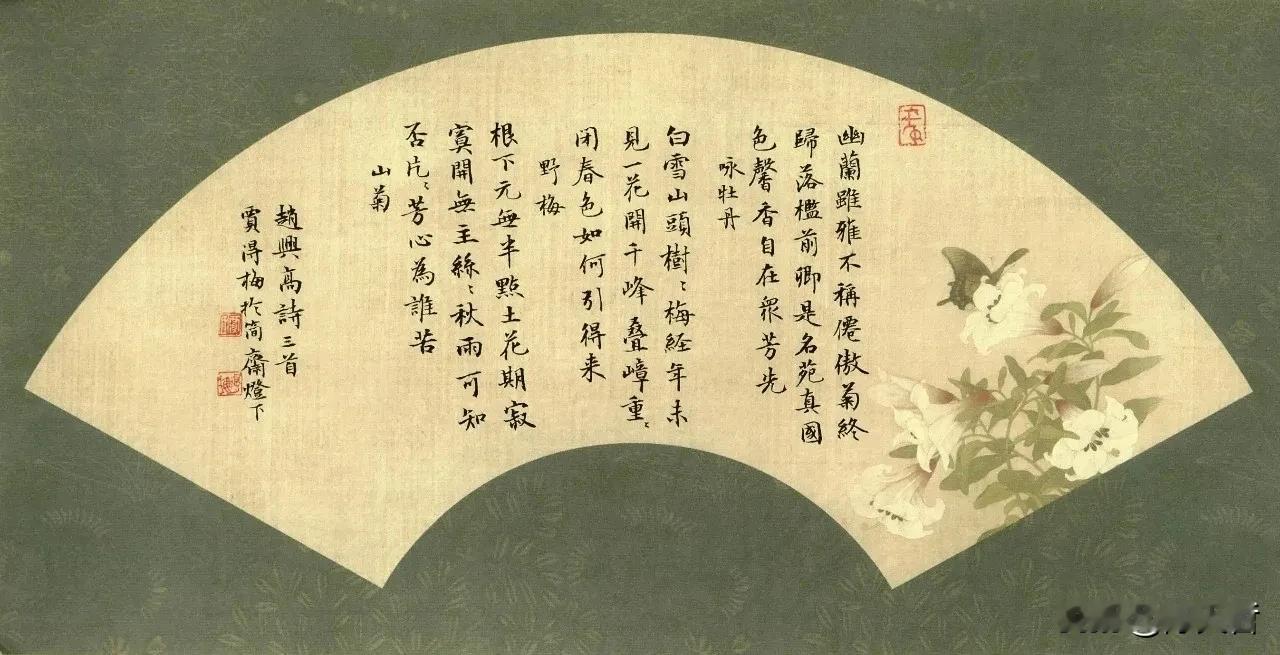 幽蘭雖雅不稱僊傲菊終
歸落檻前卿是名苑真國
色馨香自在衆芳先
咏牡丹
白雪山頭樹〻梅經年未
見一花開千峰叠嶂重〻
闭春色如何引得来
野梅
根下元無半點土花期寂
寞開無主絲〻秋雨可知
否片〻芳心為誰苦
山菊
趙興高詩三首
賈得梅於簡齋燈下